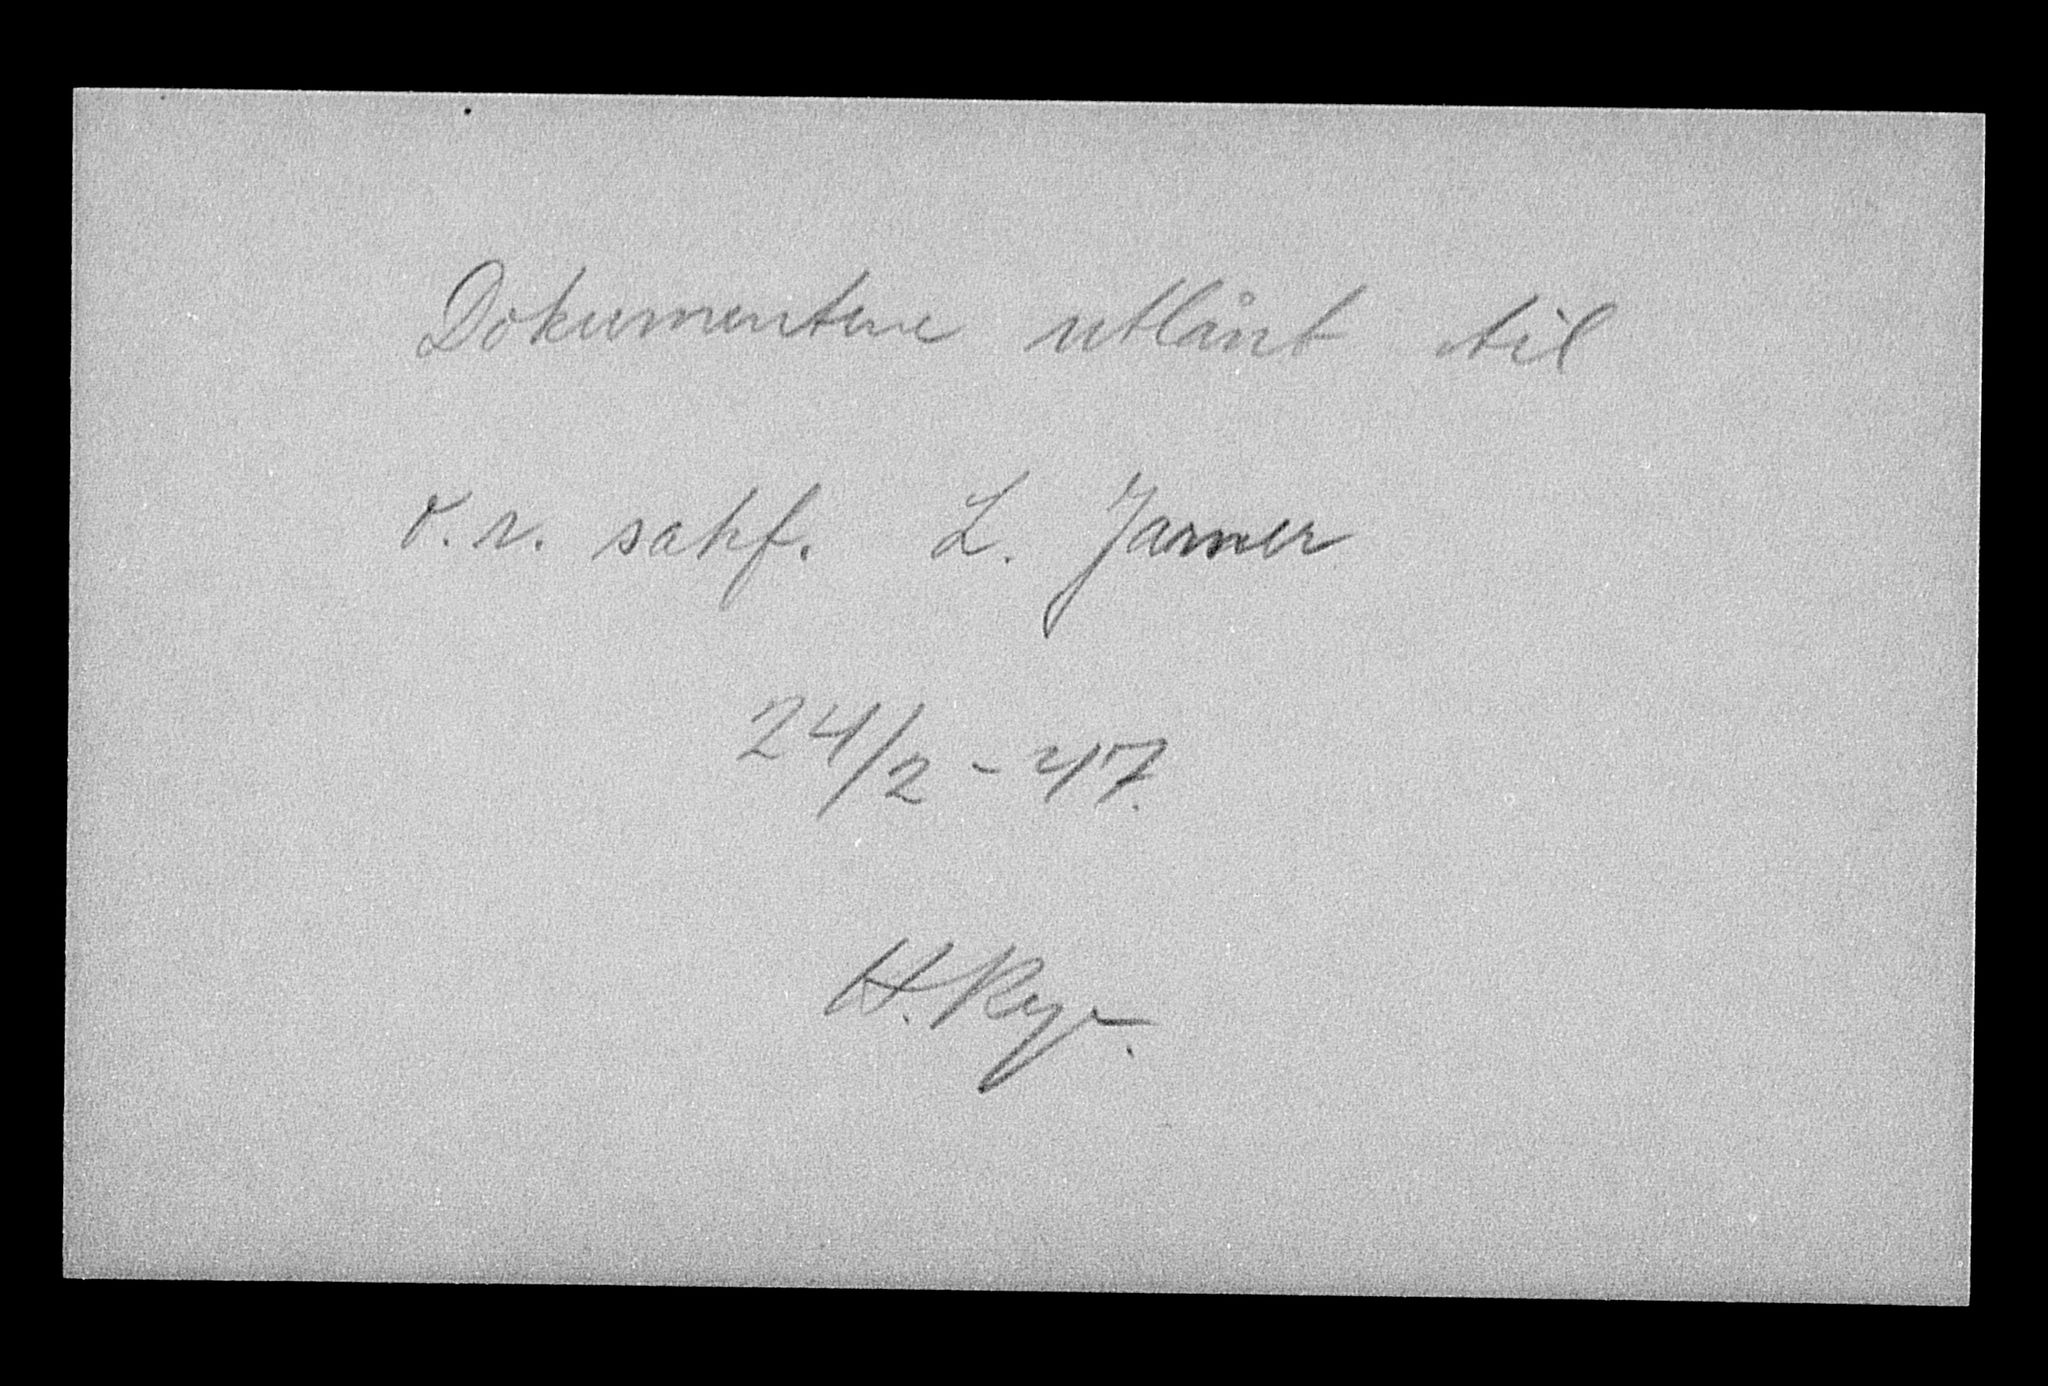 Dokumentene utlånt til
o.r. sakf. L. Jarner
24/2 - 47.
H. Rye.